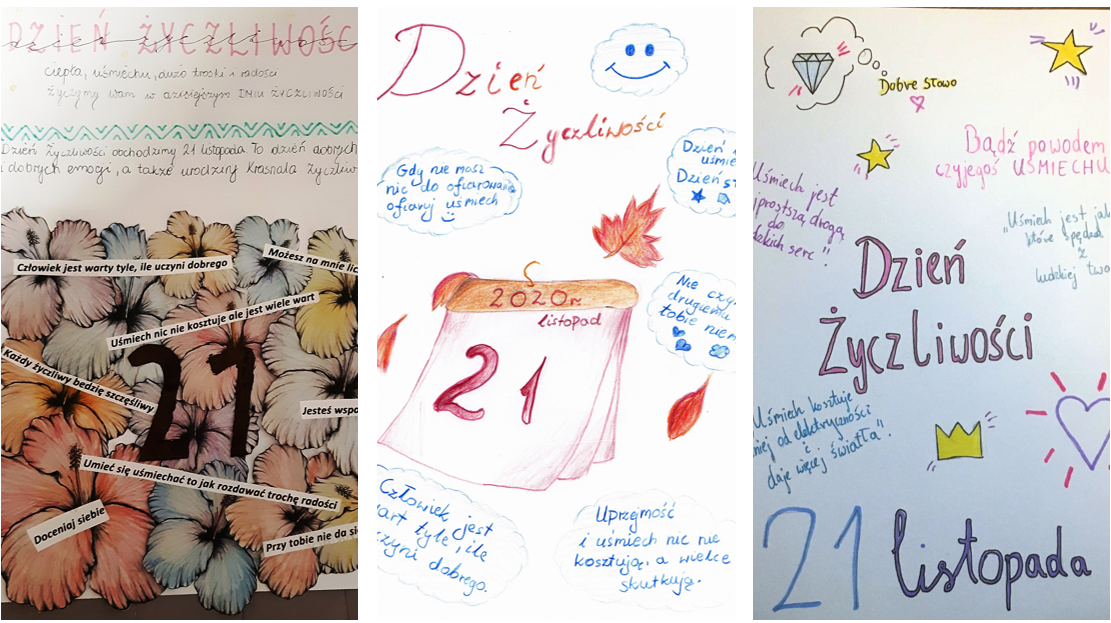 DZIEŃ ŻYCZLIWOŚC
dzień życzliwośc
ciepła, uśmiechu, dużo troski i radości
życzymy wam w dzisiejszym DNIU ŻYCZLIWOŚCI
Dzień Życzliwości obchodzimy 21 listopada. To dzień dobrych
i dobrych emocji, a także urodziny Krasnala Życzliw
Człowiek jest warty tyle, ile uczyni dobrego
Możesz na mnie lic
Uśmiech nic nie kosztuje ale jest wiele wart
21
Każdy życzliwy będzię szczęśliwy
Jesteś wspa
Umieć się uśmiechać to jak rozdawać trochę radości
Doceniaj siebie
Przy tobie nie da si
Dzień
Życzliwości
Gdy nie masz
nic do ofiarowania
ofiaruj uśmiech
Dzień
uśmie
Dzień st
2020r
listopad
21
Nie czy
drugiemu
tobie niem
Człowiek jest
art tyle, ile
czyni dobrego.
Uprzejmość
i uśmiech nic nie
kosztują, a wielce
skutkują.
Dobre słowo
Bądź powodem
czyjegoś UŚMIECHU
Uśmiech jest
jprostszą drogą
do
ludzkich serc"!
„Uśmiech jest jak
które spędza
z
ludzkiej twa
Dzień
Życzliwości
Uśmiech kosztuje
niej od elektryczności
i
daje więcej światła".
21 listopada